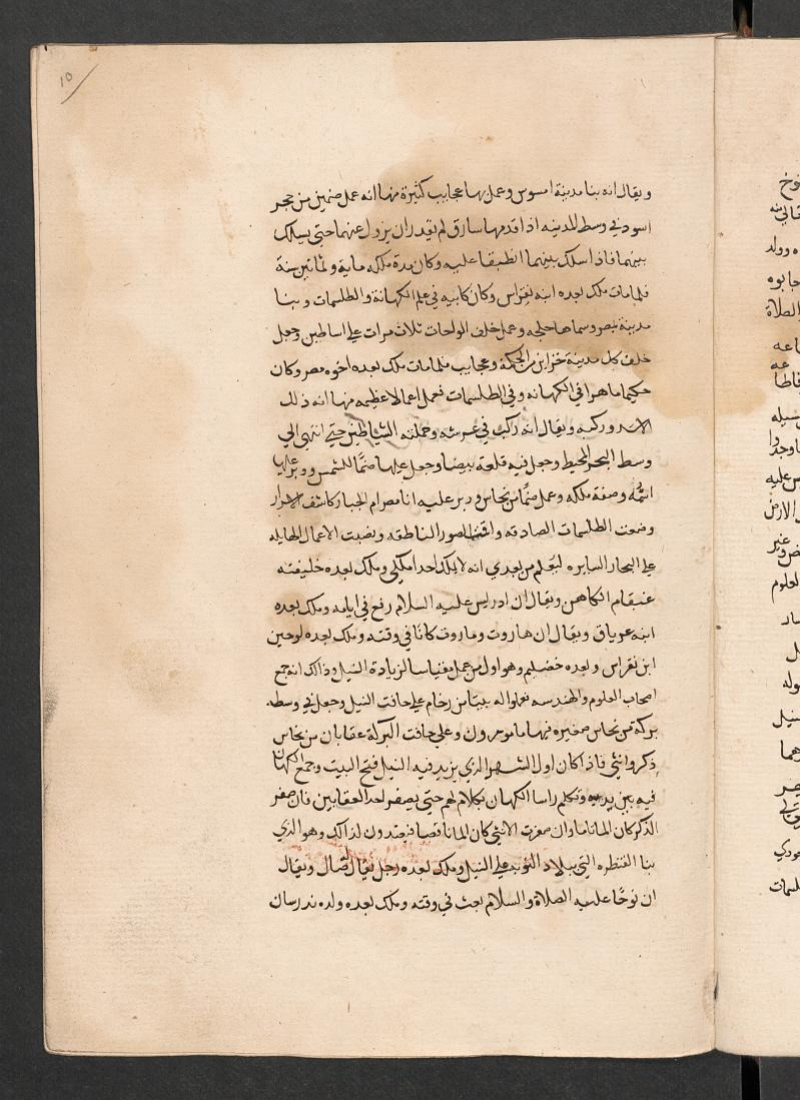 10
ويقال انه بنا مدينة امسوس وعمل بها عجايب كثيرة منها انه عمل صنمين من حجر
اسود في وسط المدينه اذا قدمها سارق لم يقدر ان يزول عنهما حتى يسلك
بينهما فاذا سلك بينهما انطبقا عليه وكان مدة ملكه ماية وثمانين سنة
فلما مات ملك بعده ابنه نقراس وكان كابيه في علم الكهانة والطلسمات وبنا
مدينة بمصر وسماها حلجه وعمل خلف الواحات ثلاث مرات على اساطين وجعل
خلف كل مدينة خزاين من الحكمة وعجايب فلما مات ملك بعده اخوه مصر وكان
حكيما ماهرا في الكهانه وفي الطلسمات فعمل اعمالا عظيمه منها انه ذلل
الاسد وركبه ويقال انه ركب في عرشه وحملته الشياطين حتى انتهى الي
وسط البحر المحيط وجعل فيه قلعة بيضا وجعل عليها صنما للشمس وزبر عليها
اسمه وصفة ملكه وعمل صنما من نحاس وزبر عليه انا مصرام الجبار كاشف الاسرار
وضعت الطلسمات الصادقه واقمت الصور الناطقه ونصبت الاعمال الهايله
على البحار السايره ليعلم من بعدي انه لا يملك احد املكي وملك بعده خليفته
عنيقام الكاهن ويقال ان ادريس عليه السلام رفع في ايامه وملك بعده
ابنه عرياق ويقال ان هاروت وماروت كانا في وقته وملك بعده لوحين
ابن نقراس وبعده خصليم وهو اول من عمل مقياسا لزيادة النيل وذالك انه جمع
اصحاب العلوم والهندسه فعملوا له بيتا من رخام على حافت النيل وجعل في وسطه
بركة من نحاس صغيره فيها ما موزون وعلى حافت البركة عقابان من نحاس
ذكر وانثى فاذا كان اول الشهر الذي يزيد فيه النيل فتح البيت وجمع الكهان
فيه بين يديه وتكلم راسا الكهان بكلام لهم حتى يصفر احد العقابين فان صفر
الذكر كان الما تاما وان صفرت الانثى كان الما ناقصا فيعتدون لذالك وهو الذي
بنا القنطره التي ببلاد النوبه على النيل وملك بعده رجل يقال له وصال ويقال
ان نوحا عليه الصلاة والسلام بعث في وقته وملك بعده ولده ندرسان